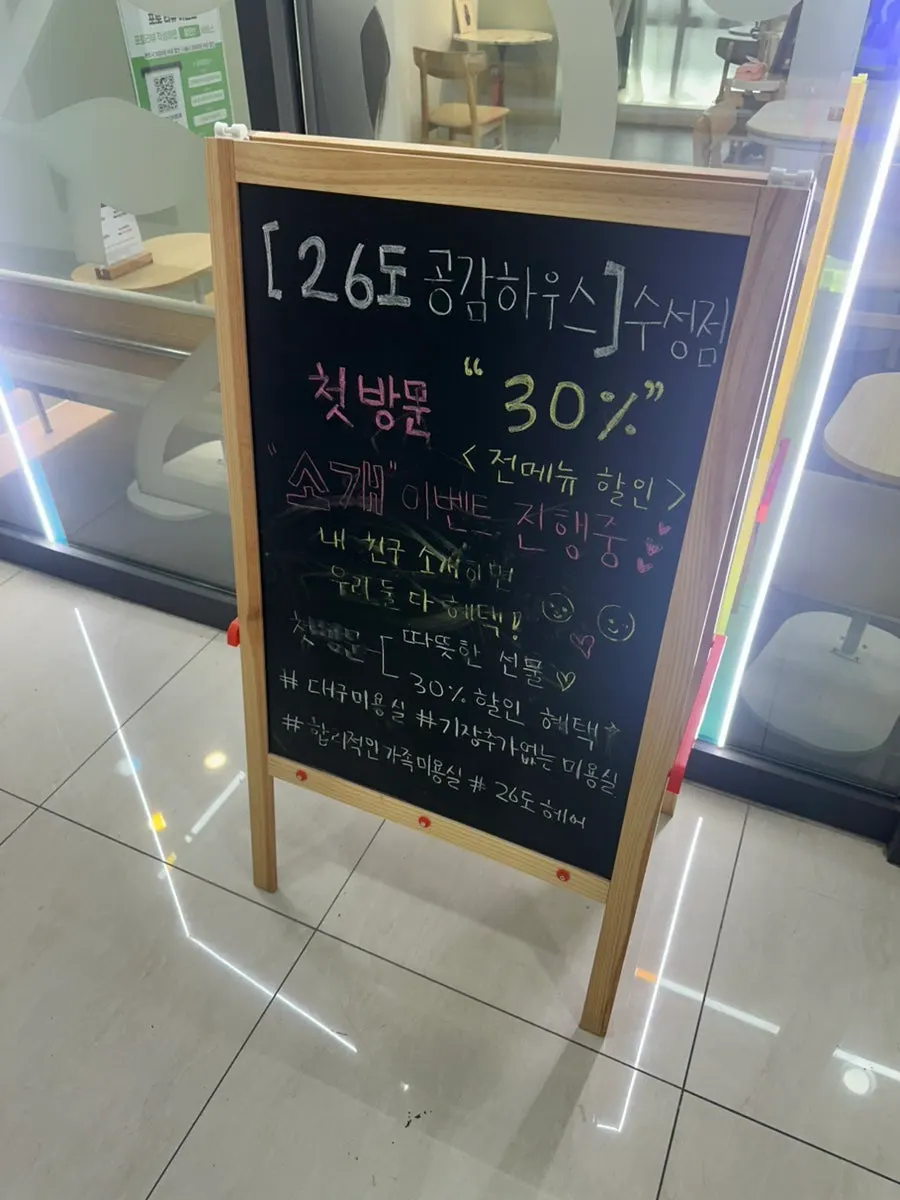 [26도 공감하우스] 수성점
첫방문 “30%”
<전메뉴 할인>
"소개" 이벤트 진행중
내 친구 소개하면
우리 둘 다 혜택!
첫방문 [ 따뜻한 선물
30% 할인 혜택
#대구미용실 #기장추가없는 미용실
#합리적인가족미용실 # 26도헤어